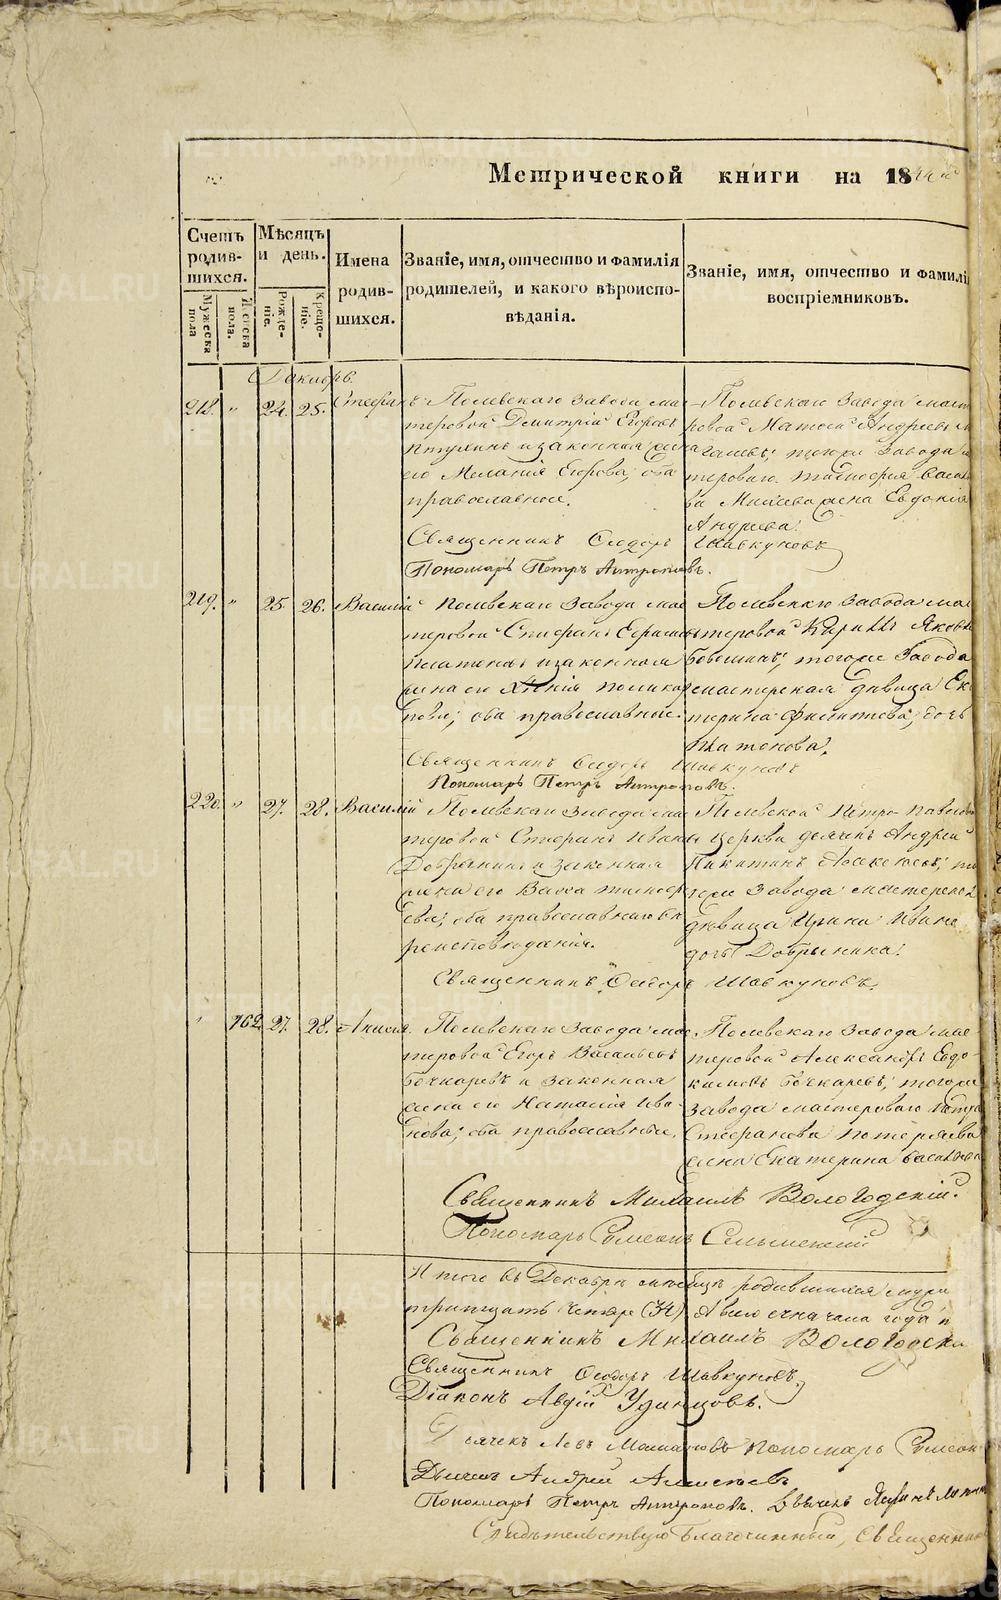 Метрической книги на 1844й
Счетъ родив-
шихся.
Мужеска пола
Женска пола.
Мѣсяцъ и день.
Рожде-
ніе.
Креще-
ніе.
Имена
родив-
шихся.
Званіе, имя, отчество и фамилія
родителей, и какого вѣроиспо-
вѣданія.
Званіе, имя, отчество и фамилі
воспріемниковъ.
Декабрь.
218. " 24. 25. Стефанъ
Полевскаго Завода мас-
теровой Димитрій Егоровъ
и законная жена
его Меланія Егорова, оба
православное.
Священникъ Феодоръ Шавкуновъ
Пономарь Петръ Антроповъ.
Полевскаго Завода маст
теровой Матвей Андреевъ
тогоже Завода
мастероваго Тимофея Васил
жена Евдокія
Андреева.
219. " 25. 26. Василій
Полевскаго Завода мас
теровой Стефанъ
и законная
жена его Ксенія Поликар
пова; оба православное.
Священникъ Феодоръ Шавкуновъ
Пономарь Петръ Антроповъ.
Полевскаго Завода мас
теровой Кириллъ Яковл
тогоже Завода
мастерская дѣвица Ек
терина Филиптева, дочь
Платонова.
220. " 27. 28. Василій
Полевскаго Завода мас
теровой Стефанъ Ивановъ
Добрынинъ и законная
жена его Васса Тимофе
ева; оба православнаго вѣ
роисповѣданія.
Священникъ Феодоръ Шавкуновъ.
Полевской Петро-Павлов
церкви дьячекъ Андрей
Никитинъ Алексеевъ; то
гоже Завода мастерская
дѣвица Ирина Ивано
дочь Добрынина.
" 162. 27. 28. Анисія.
Полевскаго Завода мас
теровой Егоръ Васильевъ
Бочкаревъ и законная
жена его Наталія Ива
нова; оба православные.
Полевскаго Завода мас
теровой Александръ Евдо
кимовъ Бочкаревъ; тогоже
Завода мастероваго Петра
Стефанова Потеряева
жена Екатерина Васильева
Священникъ Михаилъ Вологодскій.
Пономарь Симеонъ Сельменскій
Итого въ Декабрѣ месяцѣ родившихся мужи
тритцать четыре (34) А всего съ начала года
Священникъ Михаилъ Вологодски
Священникъ Феодоръ Шавкуновъ.
Діаконъ Авдій Удинцовъ.
Дьячекъ Левъ Пономарь Симеон
Дьячекъ Андрей Алексеевъ
Пономарь Петръ Антроповъ.
Свидѣтельствую Благочинный, Священни